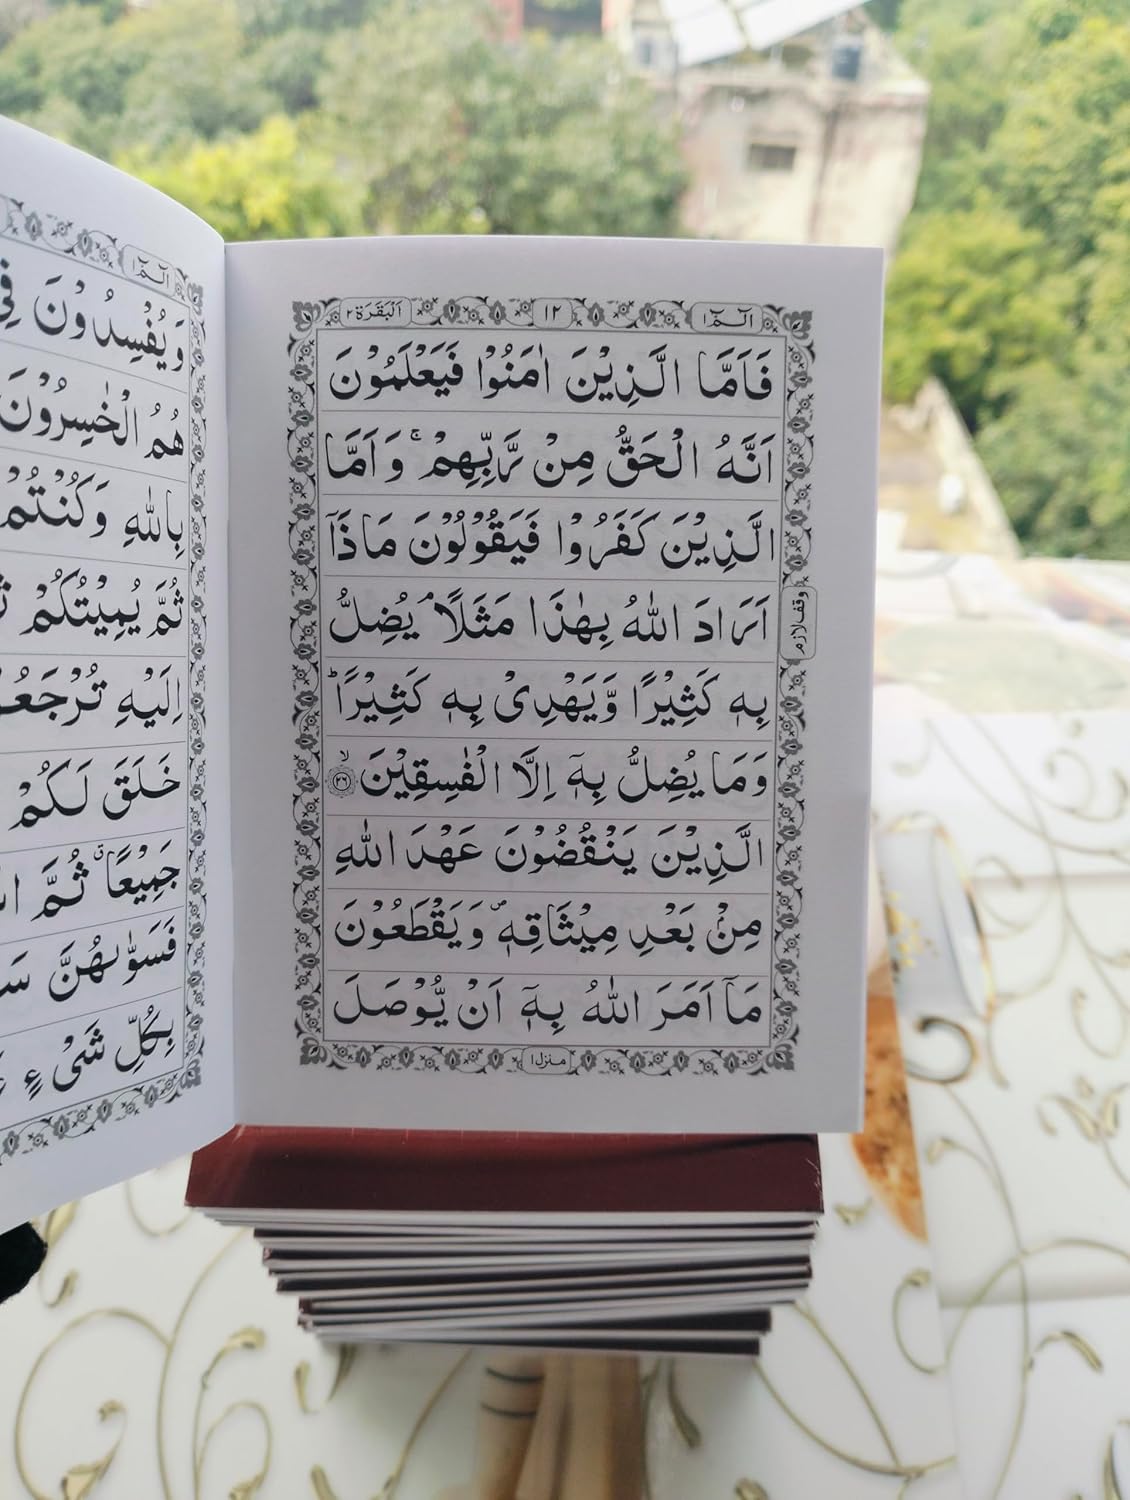 الٓمّٓ ١
١٢
اَلْبَقَرَة ٢
فَاَمَّا الَّذِيْنَ اٰمَنُوْا فَيَعْلَمُوْنَ
اَنَّهُ الْحَقُّ مِنْ رَّبِّهِمْ ۚ وَاَمَّا
الَّذِيْنَ كَفَرُوْا فَيَقُوْلُوْنَ مَاذَاۤ
اَرَادَ اللّٰهُ بِهٰذَا مَثَلًا ۘ يُضِلُّ
وقف لازم
بِهٖ كَثِيْرًا وَّيَهْدِيْ بِهٖ كَثِيْرًا ؕ
وَمَا يُضِلُّ بِهٖۤ اِلَّا الْفٰسِقِيْنَ ۙ ٢٦
الَّذِيْنَ يَنْقُضُوْنَ عَهْدَ اللّٰهِ
مِنْۢ بَعْدِ مِيْثَاقِهٖ ۪ وَيَقْطَعُوْنَ
مَاۤ اَمَرَ اللّٰهُ بِهٖۤ اَنْ يُّوْصَلَ
منزل ١
الٓمّٓ ١
وَيُفْسِدُوْنَ فِي
هُمُ الْخٰسِرُوْنَ
بِاللّٰهِ وَكُنْتُمْ
ثُمَّ يُمِيْتُكُمْ
اِلَيْهِ تُرْجَعُ
خَلَقَ لَكُمْ
جَمِيْعًا ۗ ثُمَّ
فَسَوّٰىهُنَّ
بِكُلِّ شَيْءٍ